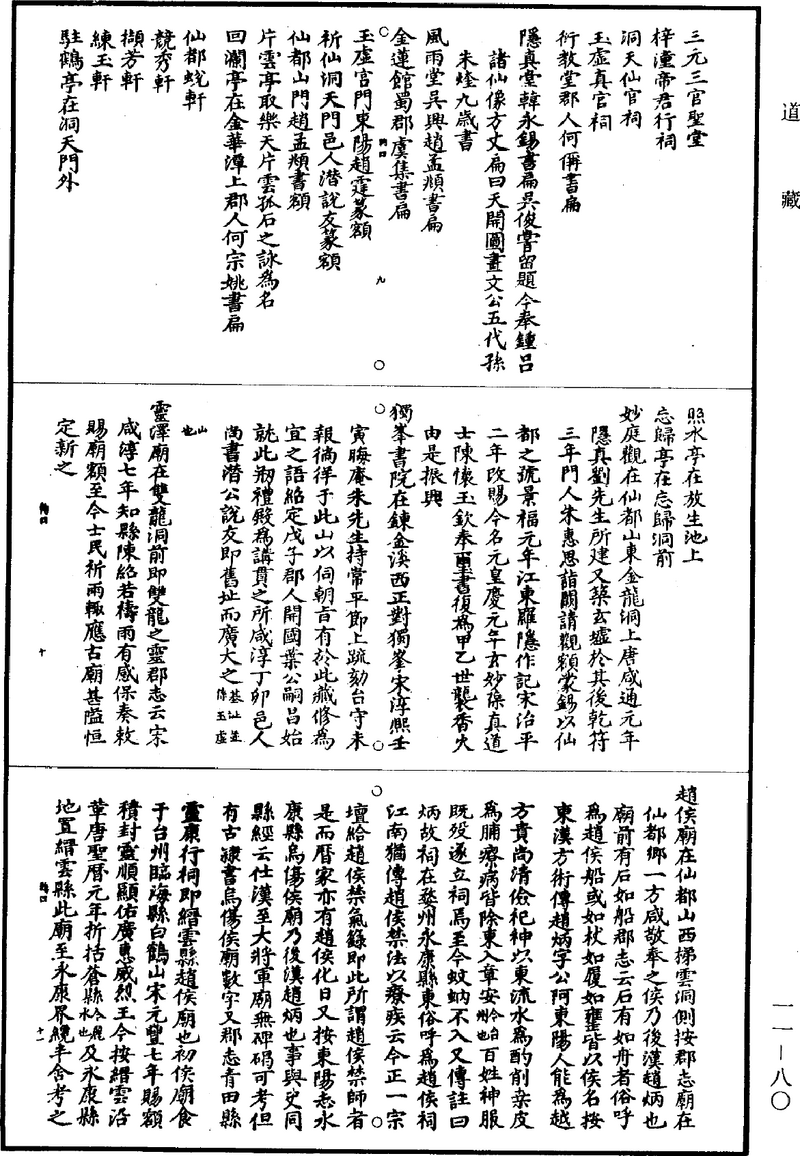 道藏
三元三官聖堂
梓潼帝君行祠
洞天仙官祠
玉虛真官祠
衍教堂郡人何偁書扁
隱真堂韓永錫書扁吳俊嘗留題今奉鍾呂
諸仙像方丈扁曰天開圖畫文公五代孫
朱煃九歲書
風雨堂吳興趙孟頫書扁
金蓮館蜀郡虞集書扁
玉虛宮門東陽趙霆篆額
祈仙洞天門邑人潛說友篆額
仙都山門趙孟頫書額
片雲亭取樂天片雲孤石之詠為名
回瀾亭在金華潭上郡人何宗姚書扁
仙都蛻軒
競秀軒
擷芳軒
練玉軒
駐鶴亭在洞天門外
九
照水亭在放生池上
忘歸亭在忘歸洞前
妙庭觀在仙都山東金龍洞上唐咸通元年
隱真劉先生所建又築玄墟於其後乾符
三年門人朱惠思詣闕請觀額蒙錫以仙
都之號景福元年江東羅隱作記宋治平
二年改賜今名元皇慶元年玄妙葆真道
士陳懷玉欽奉璽書復為甲乙世襲香火
由是振興
獨峯書院在鍊金溪西正對獨峯宋淳熙壬
寅晦庵朱先生持常平節上疏劾台守未
報徜徉于此山以伺朝旨有於此藏修為
宜之語紹定戊子郡人開國葉公嗣昌始
就此刱禮殿為講貫之所咸淳丁卯邑人
尚書潛公說友即舊址而廣大之基址並係玉虛
山也
靈澤廟在雙龍洞前即雙龍之靈郡志云宋
咸淳七年知縣陳紹若禱雨有感保奏敕
賜廟額至今士民祈雨輒應古廟甚隘恒
定新之
十
趙侯廟在仙都山西掃雲洞側按郡志廟在
仙都鄉一方咸敬奉之侯乃後漢趙炳也
廟前有石如船郡志云石有如舟者俗呼
為趙侯船或如杖如履如甕皆以侯名按
東漢方術傳趙炳字公阿東陽人能為越
方貴尚清儉祀神以東流水為酌削桑皮
為脯療病皆除東入章安今台州也百姓神服
既歿遂立祠焉至今蚊蚋不入又傳註曰
炳故祠在婺州永康縣東俗呼為趙侯祠
江南猶傳趙侯禁法以療疾云今正一宗
壇給趙侯禁氣籙即此所謂趙侯禁師者
是而曆家亦有趙侯化日又按東陽志永
康縣烏傷侯廟乃後漢趙炳也事與史同
縣經云仕漢至大將軍廟無碑碣可考但
有古隸書烏傷侯廟數字又郡志青田縣
靈康行祠即縉雲縣趙侯廟也初侯廟食
于台州臨海縣白鶴山宋元豐七年賜額
積封靈順顯佑廣惠威烈王今按縉雲沿
革唐聖曆元年折括蒼縣今麗水也及永康縣
地置縉雲縣此廟至永康界纔半舍考之
十一
一一—八〇